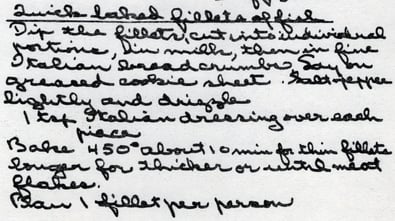 Quick baked fillets of fish
Dip the fillets, cut into individual
portions, in milk, then in fine
Italian, breadcrumbs. Lay on
greased cookie sheet. Salt-pepper
lightly and drizzle
1 tsp Italian dressing over each
piece
Bake 450° about 10 min for thin fillets
longer for thicker or until meat
flakes.
Plan 1 fillet per person